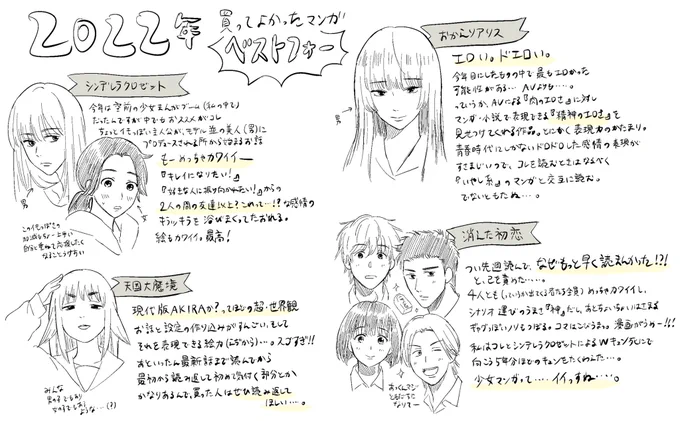 2022年
買ってよかったマンガ
ベストフォー
シンデレラクロゼット
今年は空前の少女まんがブーム(私の中で)
だったんですが中でもおススメがコレ
ちょっとイモっぽい主人公が、モデル並の美人(男)に
プロデュースされる所から始まるお話
もーめっちゃカワイイー
『キレイになりたい!』
『好きな人に振り向かれたい!』からの
2人の間の友達以上?これって…!?な感情の
キラッキラを浴びまくってたおれる。
絵もカワイイ。最高!
男
女
このイモっぽさの
自分と重ねて応援したく
なるところうまい
天国大魔境
現代版AKIRAか?ってほどの超・世界観
お話と設定の作り込みがすんごい。そして
それを表現できる絵力(ぢから)…。スゴすぎ!!
おといったん最新話まで読んでから
最初から読み返して初めて気付く部分とか
かなりあるんで、買った人はぜひ読み返して
ほしい…。
みんな
男子でもあり
女子でもある
ような…(?)
おかえりアリス
エロい。ドエロい。
今年目にしたものの中で最もエロかった
可能性がある…AVよりも…。
っていうか、AVによる『肉のエロさ』に対し
マンガ・小説で表現できる『精神のエロさ』を
見せつけてくる作品。とにかく表現力のかたまり。
青春時代にしかないドロドロした感情の表現が
すさまじいので、コレを読むときはなるべく
『いやし系』のマンガと交互に読む。
でないともたぬ…。
男
消えた初恋
つい先週読んで、なぜもっと早く読まんかった!?!
と、己を責めた…。
4人とも(というか出てくる者たち全員)めっちゃカワイイし、
シナリオ運びのうまさ『神』だし、おとちょいちょいはさまる
ギャグっぽいノリもつぼる。コマはこびうまっ。漫画がうめー!!!
私はコレとシンデレラクロゼットによるWキュンテロにて
向こう5年分ほどのキュンをたくわえた…。
少女マンガって…イイっすね…。
おっくんマジ
ともだちに
なりてー